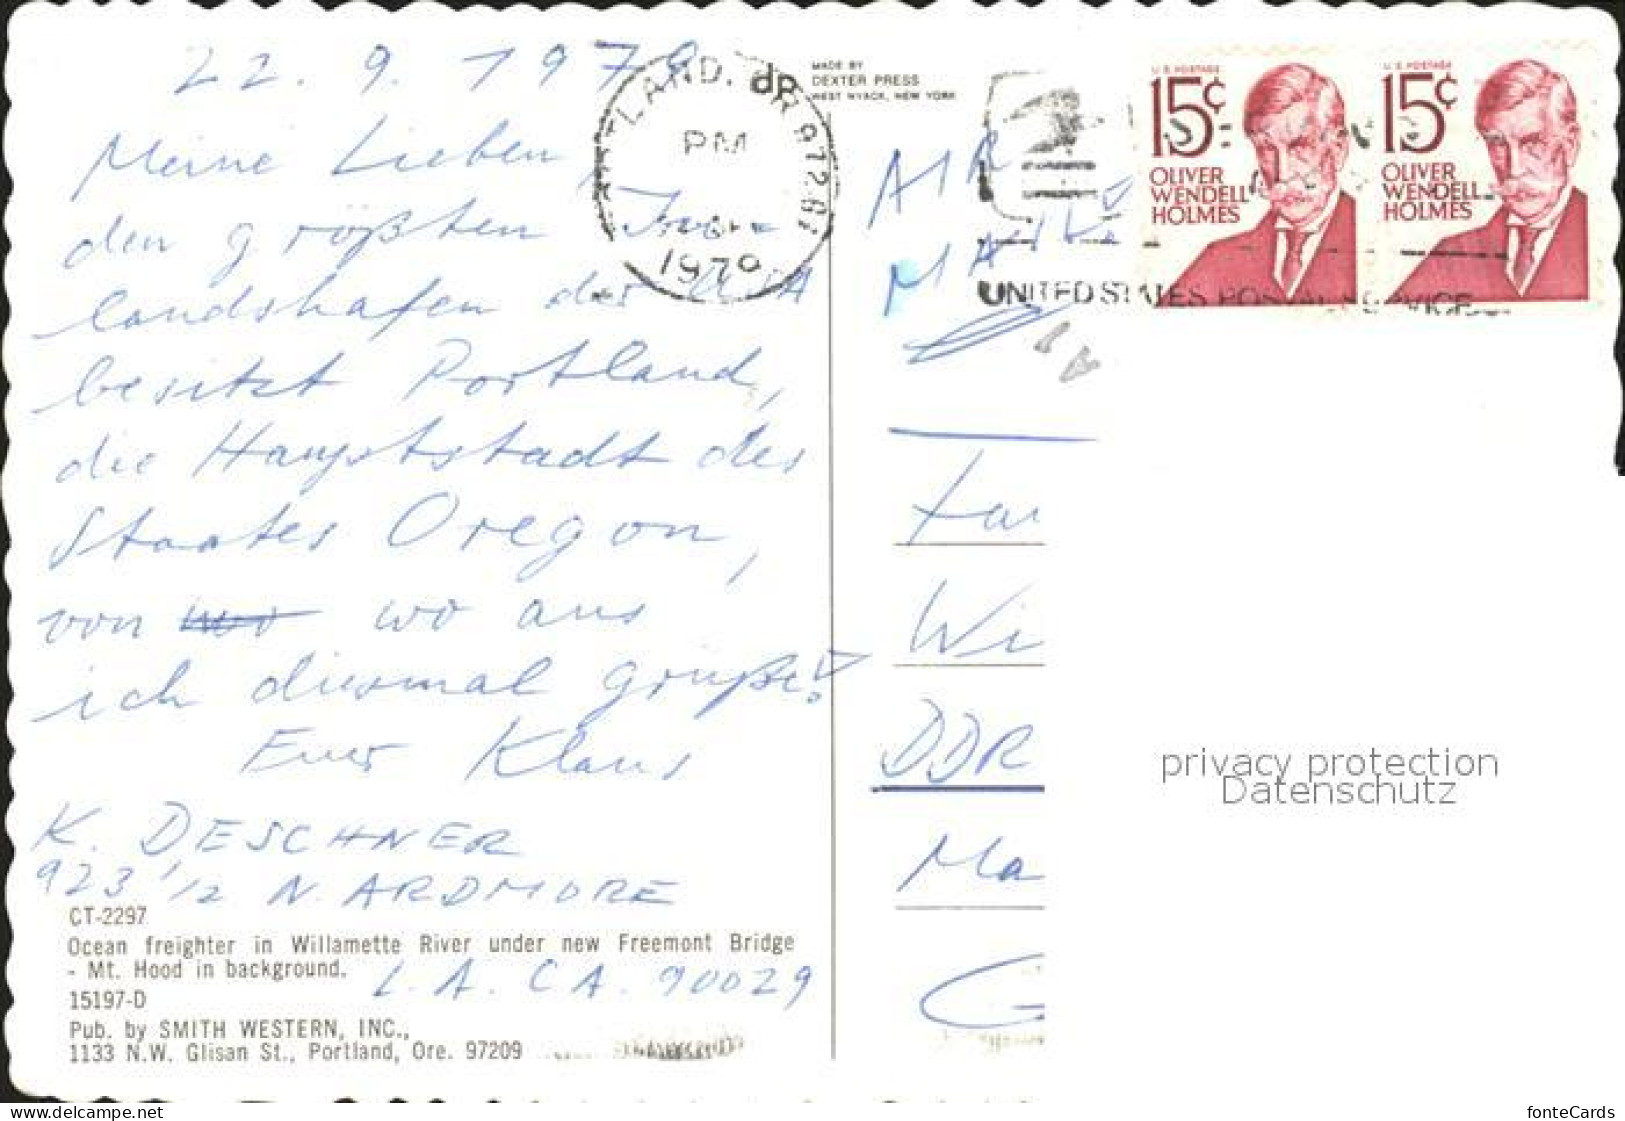 22. 9. 1979
Meine Lieben,
den größten In-
landshafen der USA
besitzt Portland,
die Hauptstadt des
Staates Oregon,
von wo aus
ich diesmal grüße!
Euer Klaus
K. DESCHNER
923 1/2 N. ARDMORE
L.A. CA. 90029
CT-2297
Ocean freighter in Willamette River under new Freemont Bridge
- Mt. Hood in background.
15197-D
Pub. by SMITH WESTERN, INC.,
1133 N.W. Glisan St., Portland, Ore. 97209
dp
MADE BY
DEXTER PRESS
WEST NYACK, NEW YORK
PM
1979
AIR
MAIL
UNITED STATES POSTAL SERVICE
U.S. POSTAGE
15¢
OLIVER
WENDELL
HOLMES
U.S. POSTAGE
15¢
OLIVER
WENDELL
HOLMES
Wi
DDR
Ma
G
privacy protection
Datenschutz
www.delcampe.net
fonteCards